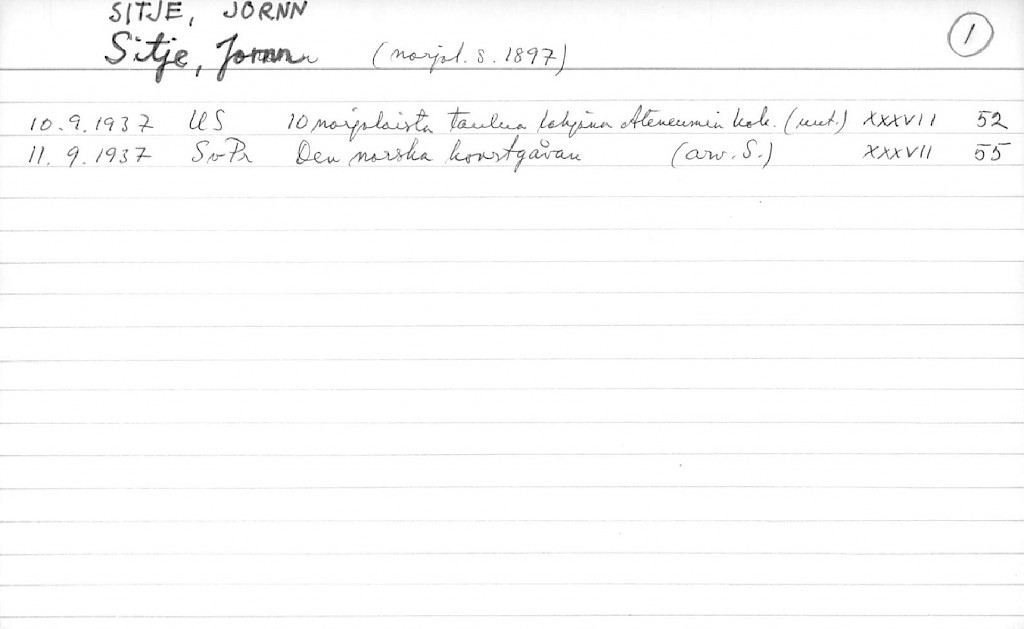 SITJE, JORNN
Sitje, Jornn (norjal. s. 1897) 1
10.9.1937 US 10 norjalaista taulua lahjana Ateneumin kok. (uut.) XXXVII 52
11.9.1937 SvPr Den norska konstgåvan (arv. S.) XXXVII 55